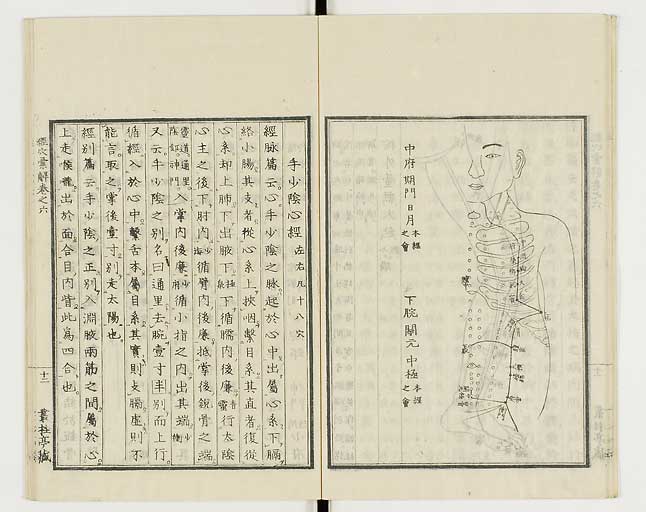 中府期門日月本經之會
下脘關元中極本經之會
手少陰心經左右凡十八穴
經脉篇云心手少陰之脉起於心中出屬心系下膈
絡小腸其支者從心系上挾咽繫目系其直者復從
心系却上肺下出腋下極泉下循臑内後廉青靈行太陰
心主之後下肘内少海循臂内後廉抵掌後銳骨之端
靈道通里陰郄神門入掌内後廉少府循小指之内出其端少衝
又云手少陰之別名曰通里去腕壹寸半別而上行
循經入於心中繫舌本屬目系其實則支膈虛則不
能言取之掌後壹寸別走太陽也
經別篇云手少陰之正別入淵腋兩筋之間屬於心
上走喉嚨出於面合目内眥此爲四合也
經穴彙解卷之六
十二
叢桂亭藏